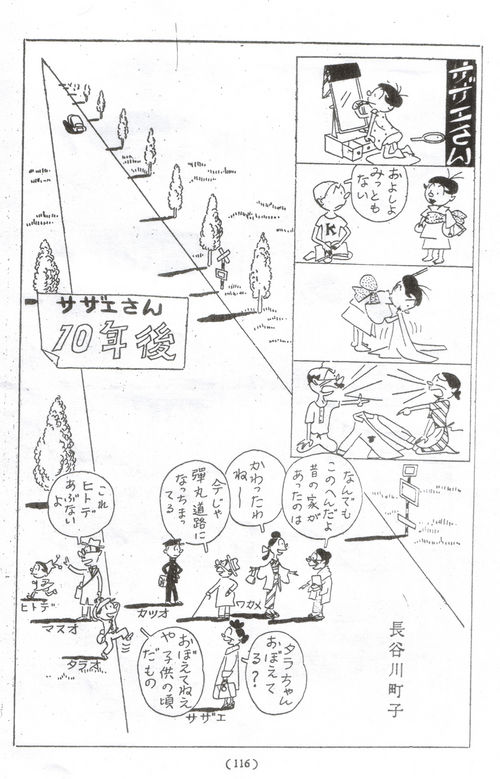 サザエさん
およしよ
みっとも
ない
K
サザエさん
10年後
なんでも
このへんだよ
昔の家が
あったのは
かわったわ
ねー
今じゃ
彈丸道路に
なっちまっ
てる
これ
ヒトデ
あぶない
よ
ワカメ
カツオ
マスオ
ヒトデ
タラオ
タラちゃん
おぼえて
る?
おぼえてねえ
や子供の頃
だもの
サザエ
長谷川町子
(116)